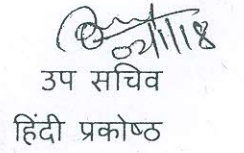 उप सचिव
हिंदी प्रकोष्ठ